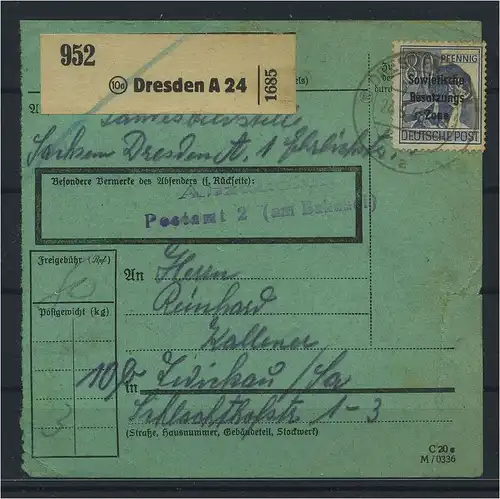 952
(10a) Dresden A 24
1685
80 PFENNIG
Sowjetische
Besatzungs
Zone
DEUTSCHE POST
Landesbildstelle
Sachsen Dresden A. 1
Besondere Vermerke des Absenders (s. Rückseite):
Postamt 2 (am Bahnhof)
Freigebühr
80
Postgewicht (kg)
3
An Herrn
Reinhard
10b Zwickau / Sa
Schlachthofstr 1-3
(Straße, Hausnummer, Gebäudeteil, Stockwerk)
C 20 e
M/0336